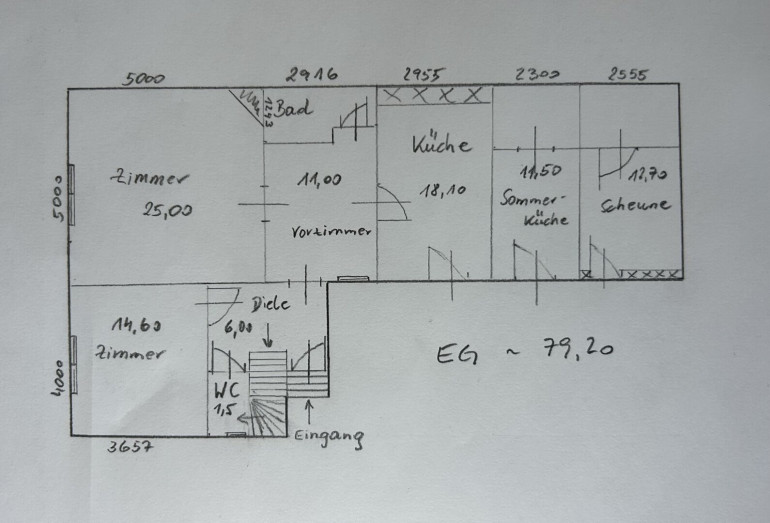 5000 2916 2955 2300 2555
Bad
1243
Küche
Zimmer
25,00
11,00
Vorzimmer
18,10
11,50
Sommer-
küche
12,70
Scheune
5000
Diele
6,00
14,60
Zimmer
EG ~ 79,20
4000
WC
1,5
Eingang
3657